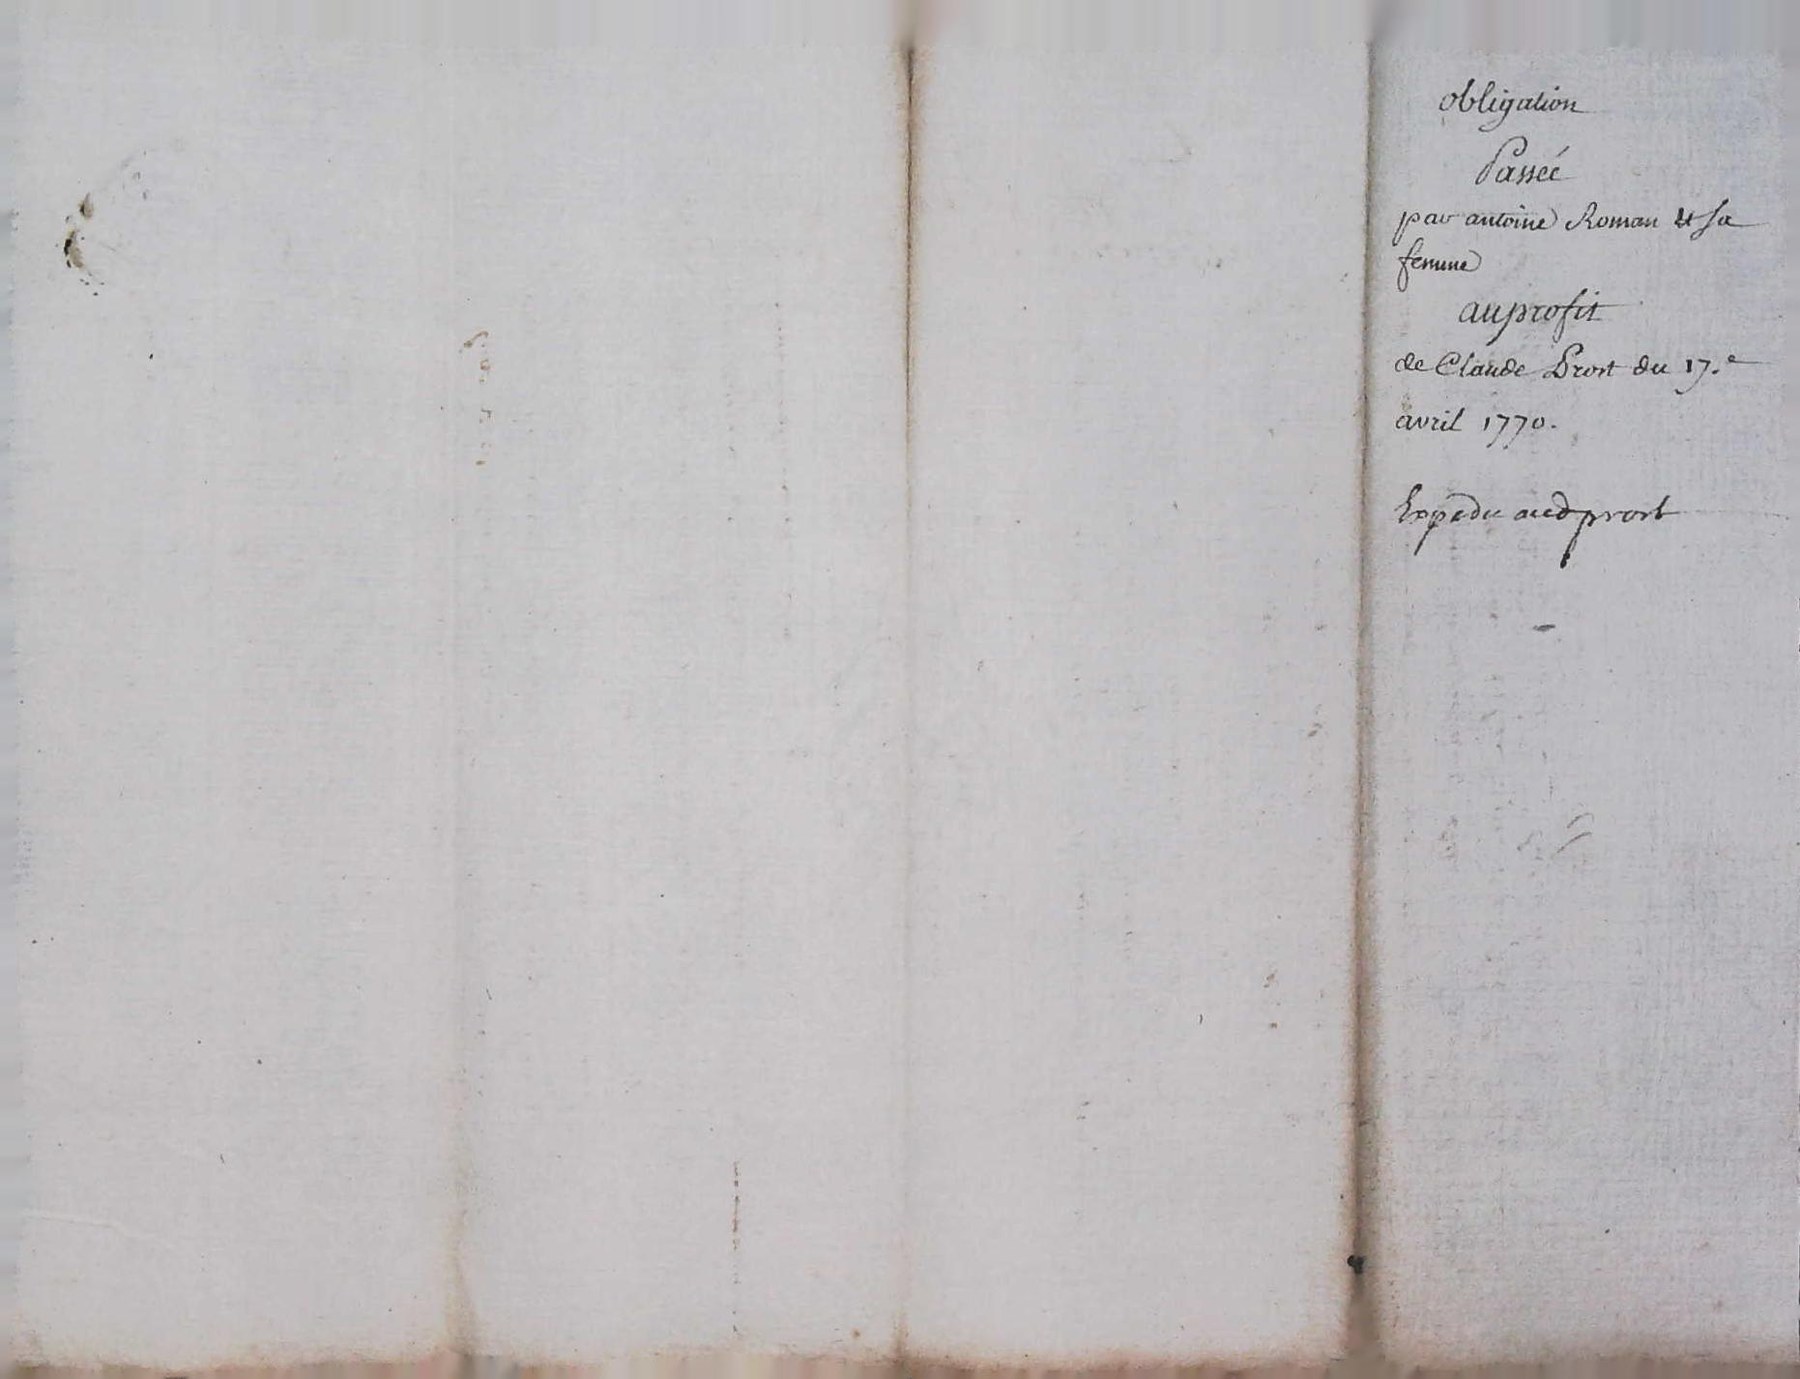 obligation
Passée
par antoine Roman et sa
femme
au profit
de Claude Prost du 17.e
avril 1770.
Expedu aud prost